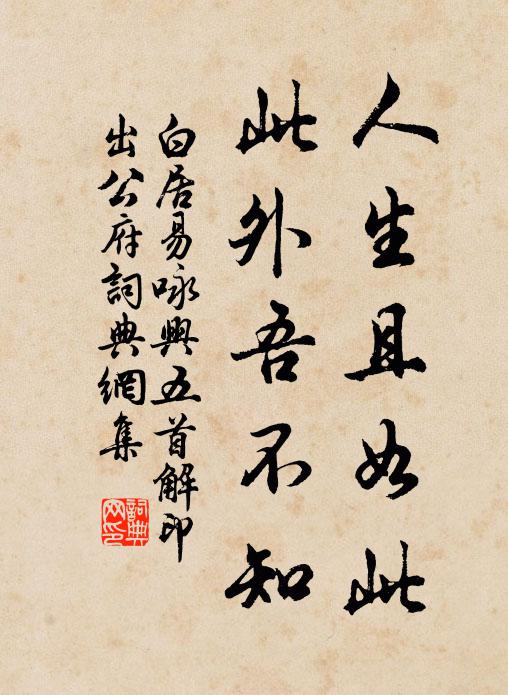 人生且如此
此外吾不知
白居易咏興五首解印
出公府詞典網集
詞典
网印